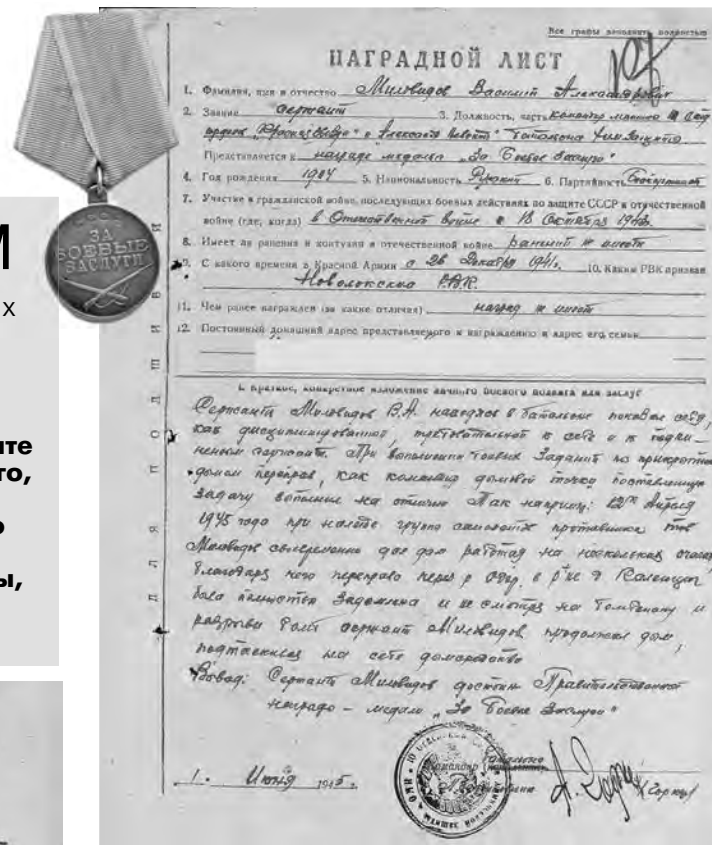 Все графы заполнять полностью
НАГРАДНОЙ ЛИСТ
1. Фамилия, имя и отчество Миловидов Василий Александрович
2. Звание сержант 3. Должность, часть
ордена и Александра Невского батальона
Представляется к награде медаль „За Боевые Заслуги"
4. Год рождения 5. Национальность Русский 6. Партийность
7. Участие в гражданской войне, последующих боевых действиях по защите СССР и отечественной
войне (где, когда) в Отечественной войне с 18 Октября
8. Имеет ли ранения и контузии в отечественной войне ранений не имеет
9. С какого времени в Красной Армии с 26 Декабря 1941г. 10. Каким РВК призван
Р.В.К.
11. Чем ранее награжден (за какие отличия) наград не имеет
12. Постоянный домашний адрес представляемого к награждению и адрес его семьи
I. Краткое, конкретное изложение личного боевого подвига или заслуг
Сержант Миловидов В.А. находясь в батальоне показал себя,
как дисциплинированный, требовательный к себе и к подчи-
ненным сержант. При выполнении боевых заданий по прикрытию
дымом переправ, как командир дымовой точки поставленную
задачу выполнил на отлично Так например: 12го Апреля
1945 года при налёте группы самолётов противника тов
Миловидов своевременно дал дым работая на нескольких очагах,
благодаря чего переправа через р Одер, в р-не
была полностью задымлена и не смотря на бомбёжку и
разрывы бомб сержант Миловидов продолжал дым,
подтаскивая на себе
Вывод: Сержант Миловидов достоин Правительственной
награды - медаль „За Боевые Заслуги"
1. Июня 1945 г.
Командир
СССР
ЗА
БОЕВЫЕ
ЗАСЛУГИ
М
х
ите
то,
о
ы,